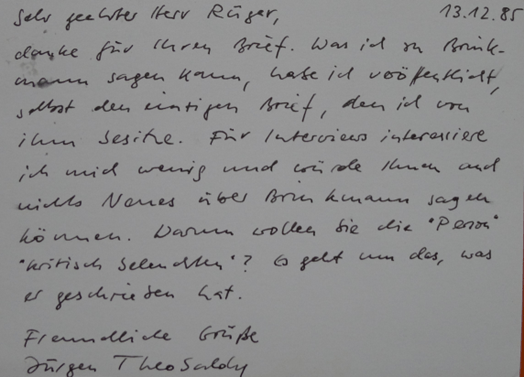 Sehr geehrter Herr Rüger, 13.12.85
danke für Ihren Brief. Was ich zu Brink-
mann sagen kann, habe ich veröffentlicht,
selbst den einzigen Brief, den ich von
ihm besitze. Für Interviews interessiere
ich mich wenig und würde Ihnen auch
nichts Neues über Brinkmann sagen
können. Warum wollen Sie die "Person"
"kritisch beleuchten"? Es geht um das, was
er geschrieben hat.
Freundliche Grüße
Jürgen Theobaldy